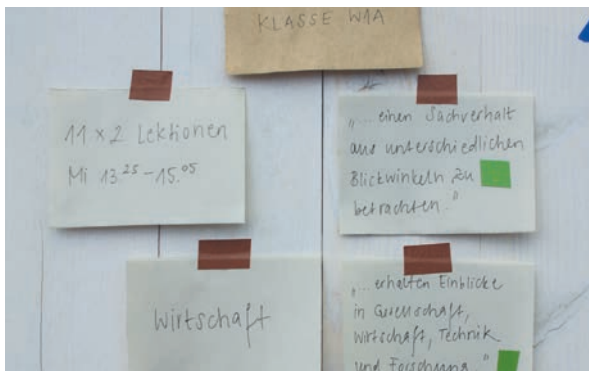 KLASSE W1A
11 x 2 Lektionen
Mi 13.25 - 15.05
„... einen Sachverhalt
aus unterschiedlichen
Blickwinkeln zu
betrachten."
Wirtschaft
„... erhalten Einblicke
in Gesellschaft,
Wirtschaft, Technik
und Forschung..."